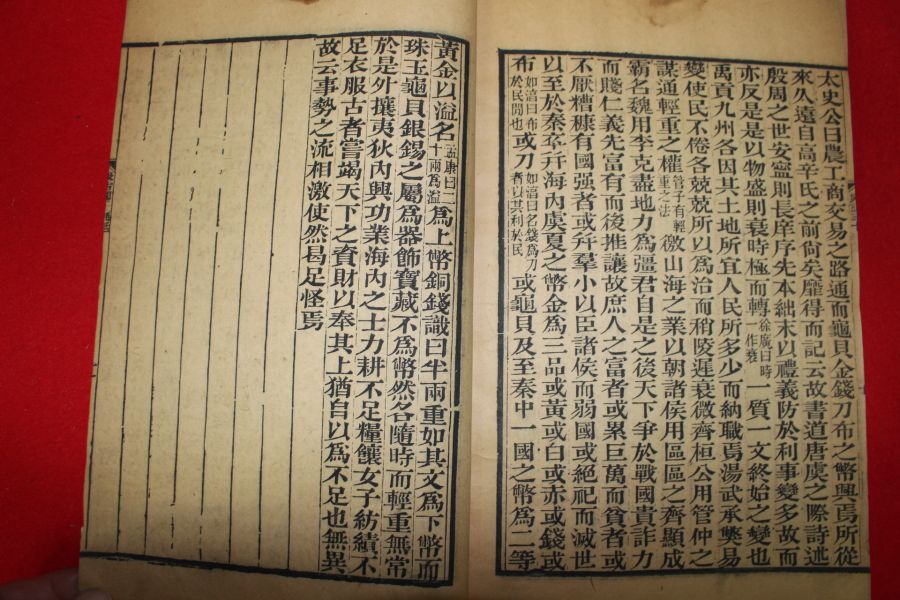 太史公曰農工商交易之路通而龜貝金錢刀布之幣興焉所從
來久遠自高辛氏之前尚矣靡得而記云故書道唐虞之際詩述
殷周之世安寧則長庠序先本絀末以禮義防於利事變多故而
亦反是是以物盛則衰時極而轉徐廣曰時一作衰一質一文終始之變也
禹貢九州各因其土地所宜人民所多少而納職焉湯武承獘易
變使民不倦各兢兢所以為治而稍陵遲衰微齊桓公用管仲之
謀通輕重之權管子有輕重之法徼山海之業以朝諸侯用區區之齊顯成
霸名魏用李克盡地力為彊君自是之後天下爭於戰國貴詐力
而賤仁義先富有而後推讓故庶人之富者或累巨萬而貧者或
不厭糟糠有國强者或并羣小以臣諸侯而弱國或絕祀而滅世
以至於秦卒并海內虞夏之幣金為三品或黃或白或赤或錢或
布如淳曰布於民間也或刀如淳曰名錢為刀者以其利於民或龜貝及至秦中一國之幣為二等
黃金以溢名孟康曰二十兩為溢為上幣銅錢識曰半兩重如其文為下幣而
珠玉龜貝銀錫之屬為器飾寶藏不為幣然各隨時而輕重無常
於是外攘夷狄內興功業海內之士力耕不足糧饟女子紡績不
足衣服古者嘗竭天下之資財以奉其上猶自以為不足也無異
故云事勢之流相激使然曷足怪焉